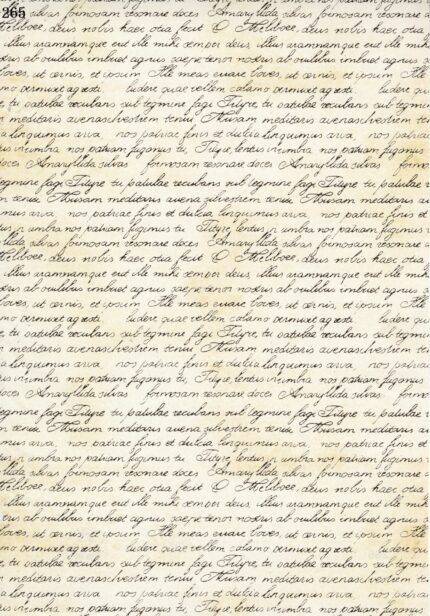 265
silvas formosam resonare doces Amaryllida silvas formosam resonare
Meliboee, deus nobis haec otia fecit O Meliboee, deus nobis haec otia
illius arammamque erit ille mihi semper deus, illius arammamque erit ille mihi
ab ovilibus imbuet agnus saepe tener nostris ab ovilibus imbuet agnus
boves, ut cernis, et ipsum Ille meas errare boves, ut cernis, et ipsum Ille
permisit agresti ludere quae vellem calamo permisit agresti ludere
tu patulae recubans sub tegmine fagi Tityre, tu patulae recubans sub tegmine
meditaris avena silvestrem tenui Musam meditaris avena silvestrem
linquimus arva nos patriae finis et dulcia linquimus arva nos patriae
in umbra nos patriam fugimus tu, Tityre, lentus in umbra nos patriam fugimus
doces Amaryllida silvas formosam resonare doces Amaryllida silvas
tegmine fagi Tityre tu patulae recubans sub tegmine fagi Tityre tu patulae
tenui Musam meditaris avena silvestrem tenui Musam meditaris
arva nos patriae finis et dulcia linquimus arva nos patriae finis et
in umbra nos patriam fugimus tu Tityre, lentus in umbra nos patriam fugimus
silvas formosam resonare doces Amaryllida silvas formosam resonare
Meliboee, deus nobis haec otia fecit O Meliboee, deus nobis haec otia
illius arammamque erit ille mihi semper deus, illius arammamque erit ille mihi
ab ovilibus imbuet agnus saepe tener nostris ab ovilibus imbuet agnus
boves, ut cernis, et ipsum Ille meas errare boves, ut cernis, et ipsum Ille
permisit agresti ludere quae vellem calamo permisit agresti ludere
tu patulae recubans sub tegmine fagi Tityre, tu patulae recubans sub tegmine
meditaris avena silvestrem tenui Musam meditaris avena silvestrem
linquimus arva nos patriae finis et dulcia linquimus arva nos patriae
in umbra nos patriam fugimus tu, Tityre, lentus in umbra nos patriam fugimus
doces Amaryllida silvas formosam resonare doces Amaryllida silvas
tegmine fagi Tityre tu patulae recubans sub tegmine fagi Tityre tu patulae
tenui Musam meditaris avena silvestrem tenui Musam meditaris
arva nos patriae finis et dulcia linquimus arva nos patriae finis et
in umbra nos patriam fugimus tu Tityre, lentus in umbra nos patriam fugimus
silvas formosam resonare doces Amaryllida silvas formosam resonare
Meliboee, deus nobis haec otia fecit O Meliboee, deus nobis haec otia
illius arammamque erit ille mihi semper deus, illius arammamque erit ille mihi
ab ovilibus imbuet agnus saepe tener nostris ab ovilibus imbuet agnus
boves, ut cernis, et ipsum Ille meas errare boves, ut cernis, et ipsum Ille
permisit agresti ludere quae vellem calamo permisit agresti ludere
tu patulae recubans sub tegmine fagi Tityre, tu patulae recubans sub tegmine
meditaris avena silvestrem tenui Musam meditaris avena silvestrem
linquimus arva nos patriae finis et dulcia linquimus arva nos patriae
in umbra nos patriam fugimus tu, Tityre, lentus in umbra nos patriam fugimus